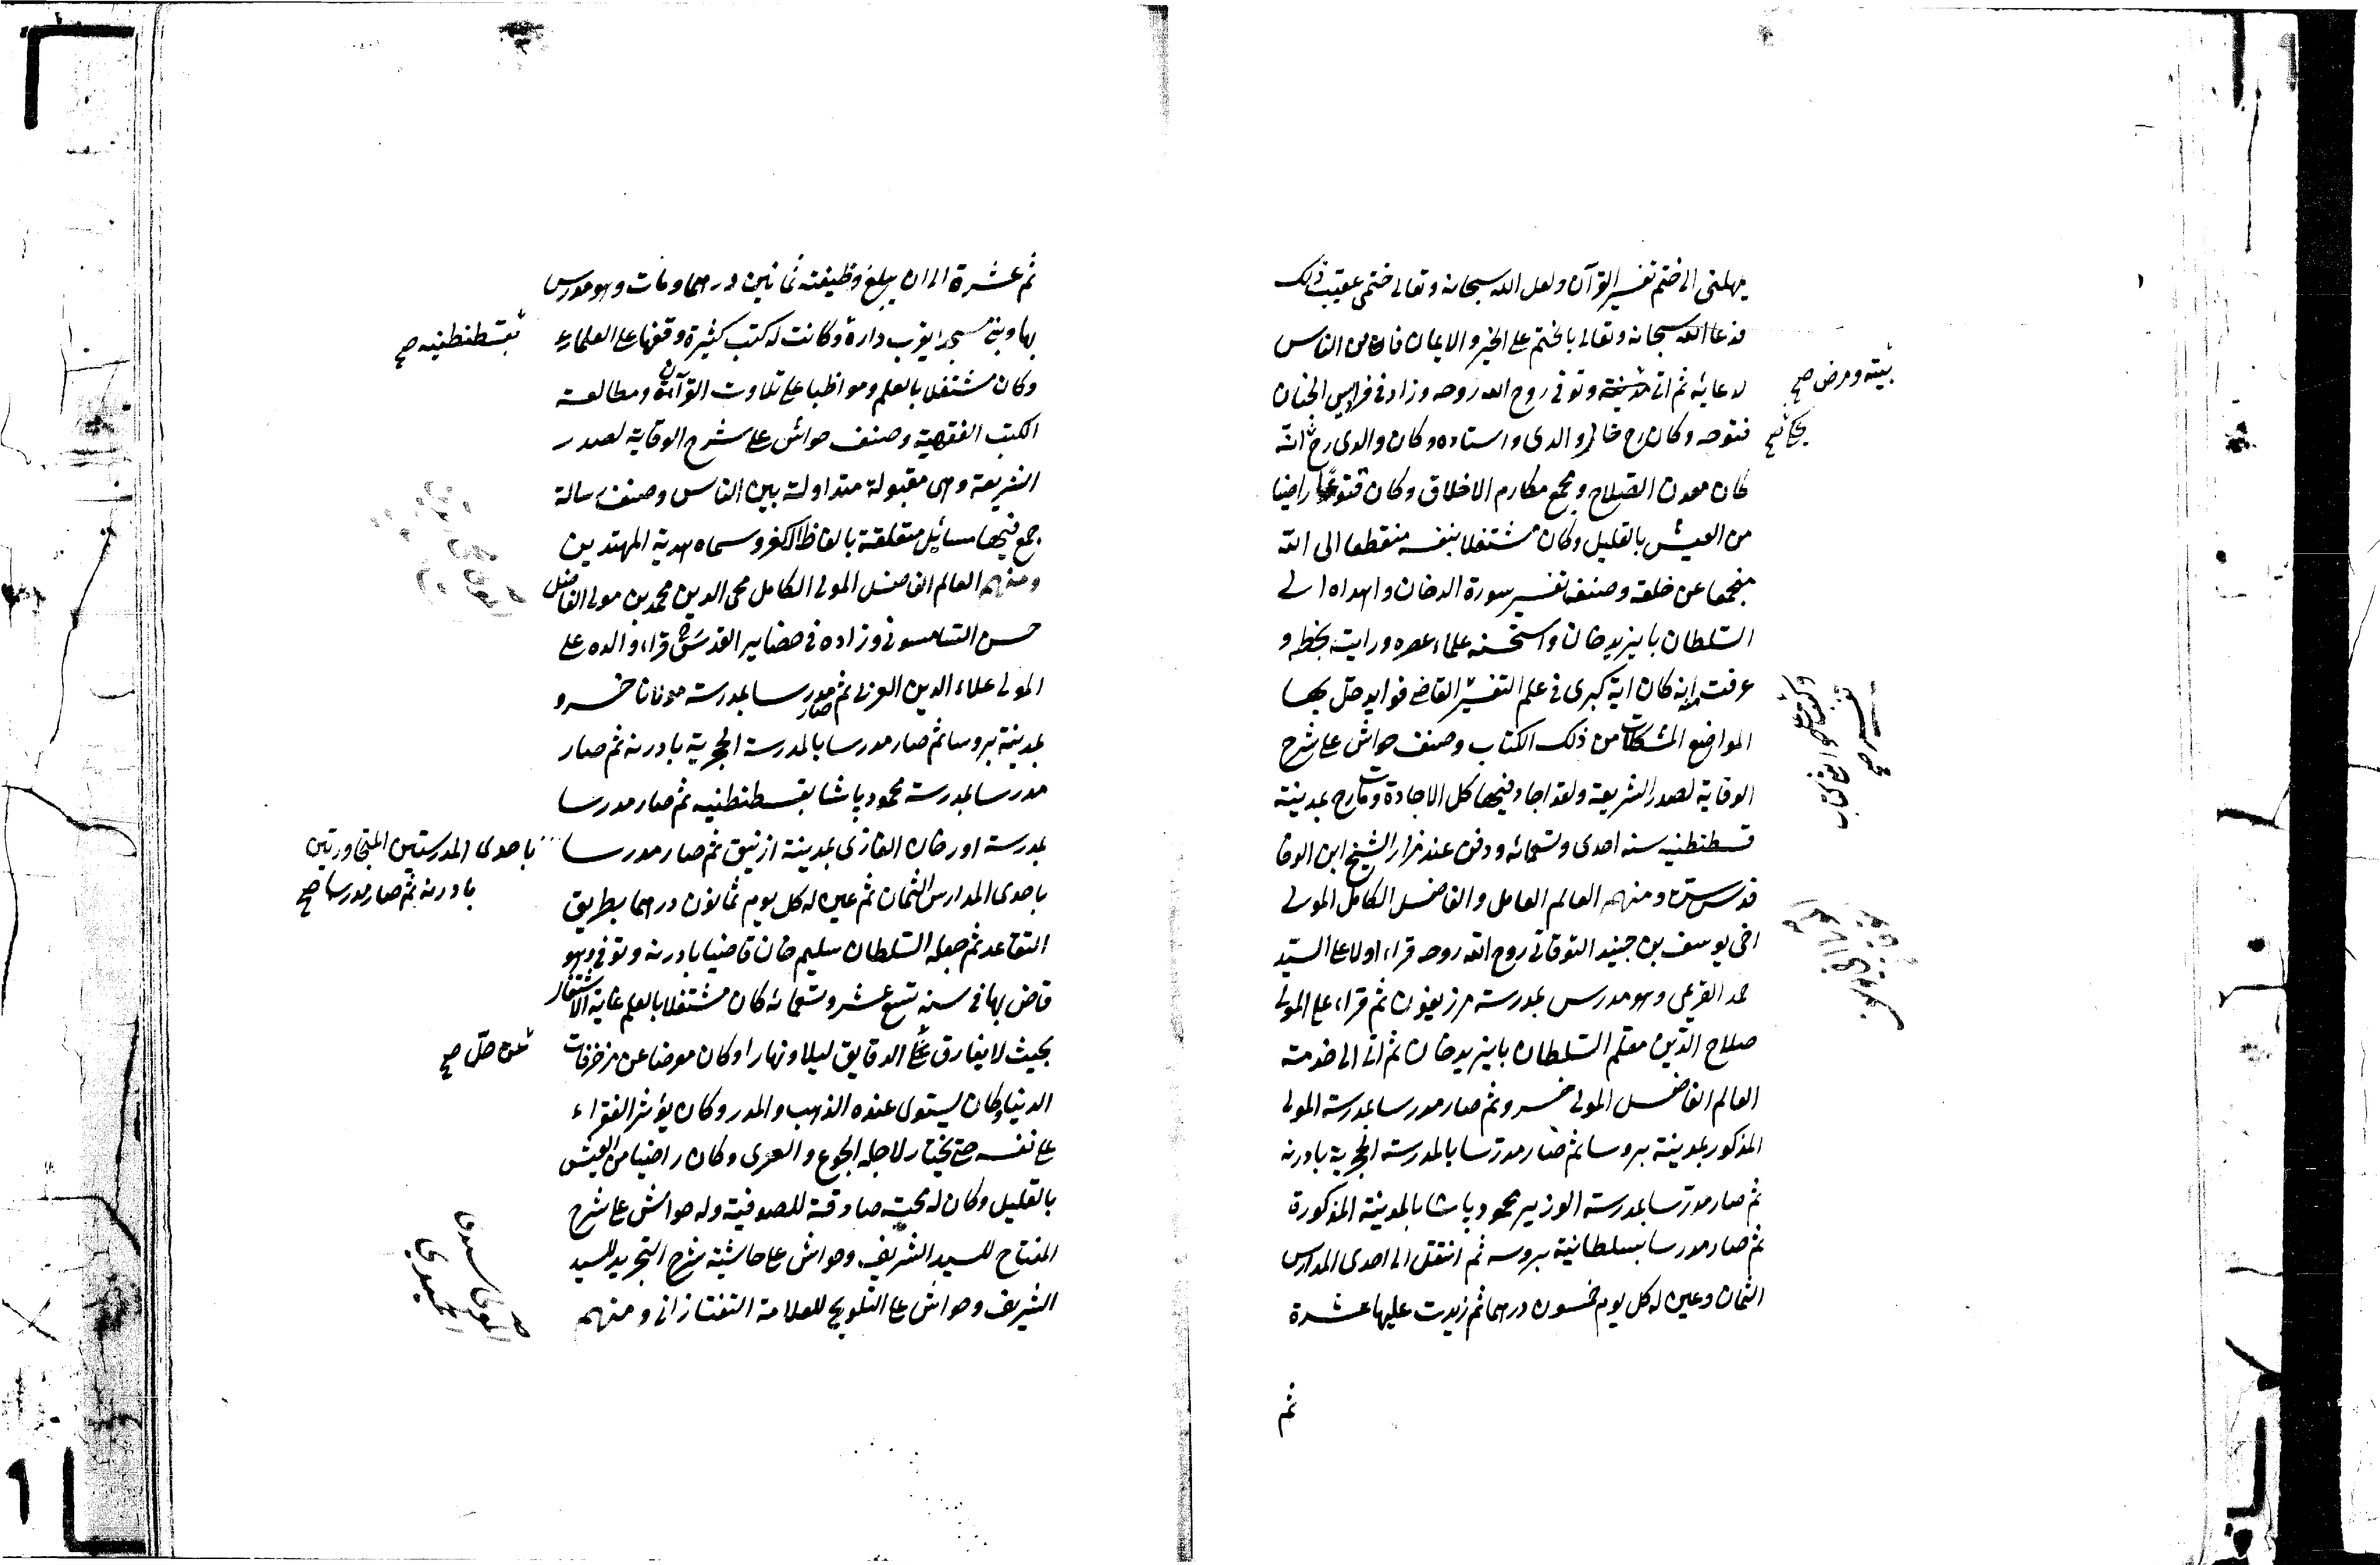 يمهلنى الى ختم تفسير القرآن ولعل الله سبحانه وتعالى ختمى عقيب ذلك
فدعا الله سبحانه وتعالى بالختم على الخير والايمان فامن الناس
لدعائه ثم اتى وتوفى روح الله روحه وزاد فى فراديس الجنان
بيته ومرض صح
فتوحه وكان رح خال والدى واستاده وكان والدى رح انه
كان معدن الصلاح ومجمع مكارم الاخلاق وكان قنوعا راضيا
من العيش بالقليل وكان مشتغلا بنفسه منقطعا الى الله
منجمعا عن خلقه وصنف تفسير سورة الدخان واهداه الى
السلطان بايزيد خان واستحسنه علماء عصره ورايت بخطه و
عرفت انه كان اية كبرى فى علم التفسير القاضى فوايد حل بها
المواضع المشكلات من ذلك الكتاب وصنف حواش على شرح
الوقاية لصدر الشريعة ولقد اجاد فيها كل الاجادة ومات رح بمدينة
قسطنطنيه سنه احدى وتسعمائه ودفن عند مزار الشيخ ابن الوفا
قدس سره ومنهم العالم العامل والفاضل الكامل المولى
اخى يوسف بن جنيد التوقاتى روح الله روحه قراء اولا على السيد
احمد القريمى وهو مدرس بمدرسة مرزيفون ثم قراء على المولى
صلاح الدين معلم السلطان بايزيد خان ثم اتى الى خدمة
العالم الفاضل المولى خسرو ثم صار مدرسا بمدرسة المولى
المذكور بمدينة بروسا ثم صار مدرسا بالمدرسة الحجرية بادرنه
ثم صار مدرسا بمدرسة الوزير محمود باشا بالمدينة المذكورة
ثم صار مدرسا بسلطانية بروسه ثم انتقل الى احدى المدارس
الثمان وعين له كل يوم خمسون درهما ثم زيدت عليها عشرة
ثم
ثم عشرة الى ان يبلغ وظيفته ثمانين درهما ومات وهو مدرس
بها وبنى مسجدا بقرب داره وكانت له كتب كثيرة وقفها على العلماء
بقسطنطنيه صح
وكان مشتغلا بالعلم ومواظبا على تلاوت القرآن ومطالعة
الكتب الفقهية وصنف حواش على شرح الوقاية لصدر
الشريعة وهى مقبولة متداولة بين الناس وصنف رسالة
جمع فيها مسائل متعلقة بالفاظ الكفر وسماه هدية المهتدين
ومنهم العالم الفاضل المولى الكامل محى الدين محمد بن مولى الفاضل
حسن السامسونى وزاده فى حضاير القدس قراء والده على
المولى علاء الدين العربى ثم صار مدرسا بمدرسة مولانا خسرو
بمدينة بروسا ثم صار مدرسا بالمدرسة الحجرية بادرنه ثم صار
مدرسا بمدرسة محمود باشا بقسطنطنيه ثم صار مدرسا
بمدرسة اورخان الغازى بمدينة ازنيق ثم صار مدرسا
باحدى المدرستين المتجاورتين
بادرنه ثم صار مدرسا صح
باحدى المدارس الثمان ثم عين له كل يوم ثمانون درهما بطريق
التقاعد ثم جعله السلطان سليم خان قاضيا بادرنه وتوفى وهو
قاض بها فى سنه تسع عشر وتسعمائه كان مشتغلا بالعلم غاية الاشتغال
بحيث لا يفارق الدقايق ليلا ونهارا وكان معرضا عن مزخرفات
عن حل صح
الدنيا وكان يستوى عنده الذهب والمدر وكان يؤثر الفقراء
على نفسه حتى يختار لاجله الجوع والعرى وكان راضيا من العيش
بالقليل وكان له محبة صادقة للصوفية وله حواش على شرح
المفتاح للسيد الشريف وحواش على حاشية شرح التجريد للسيد
الشريف وحواش على التلويح للعلامة التفتازانى ومنهم